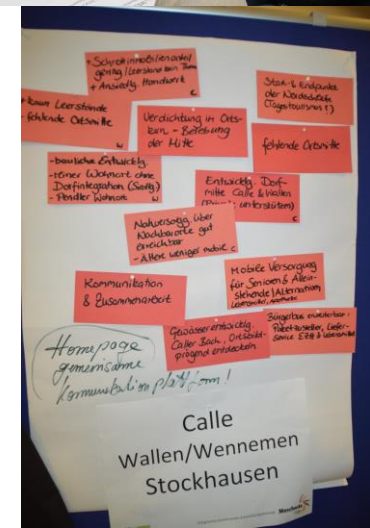 + Schrottimmobilienanteil
gering / Leerstand kein Thema
+ Ansiedlg. Handwerk
C
Start- & Endpunkt
der Nordschleife
(Tagestourismus!)
+ kaum Leerstände
- fehlende Ortsmitte
W
Verdichtung in Orts-
kern - Belebung
der Mitte
fehlende Ortsmitte
- bauliche Entwicklg.
- reiner Wohnort ohne
Dorfintegration (Siedlg.)
- Pendler Wohnort W
Entwicklg. Dorf-
mitte Calle & Wallen
unterstützen)
C
Nahversorgg. über
Nachbarorte gut
erreichbar
- Ältere weniger mobil C
Kommunikation
& Zusammenarbeit
Mobile Versorgung
für Senioren & Allein-
stehende / Alternativen
Lebensmittel, Apotheke
Gewässerentwicklg.
Caller Bach, Ortsbild-
prägend entwickeln
Bürgerbus erweiterbar:
Paketzusteller, Liefer-
service & Lebensmittel
Homepage
gemeinsame
Kommunikationsplattform!
Calle
Wallen/Wennemen
Stockhausen
Meschede